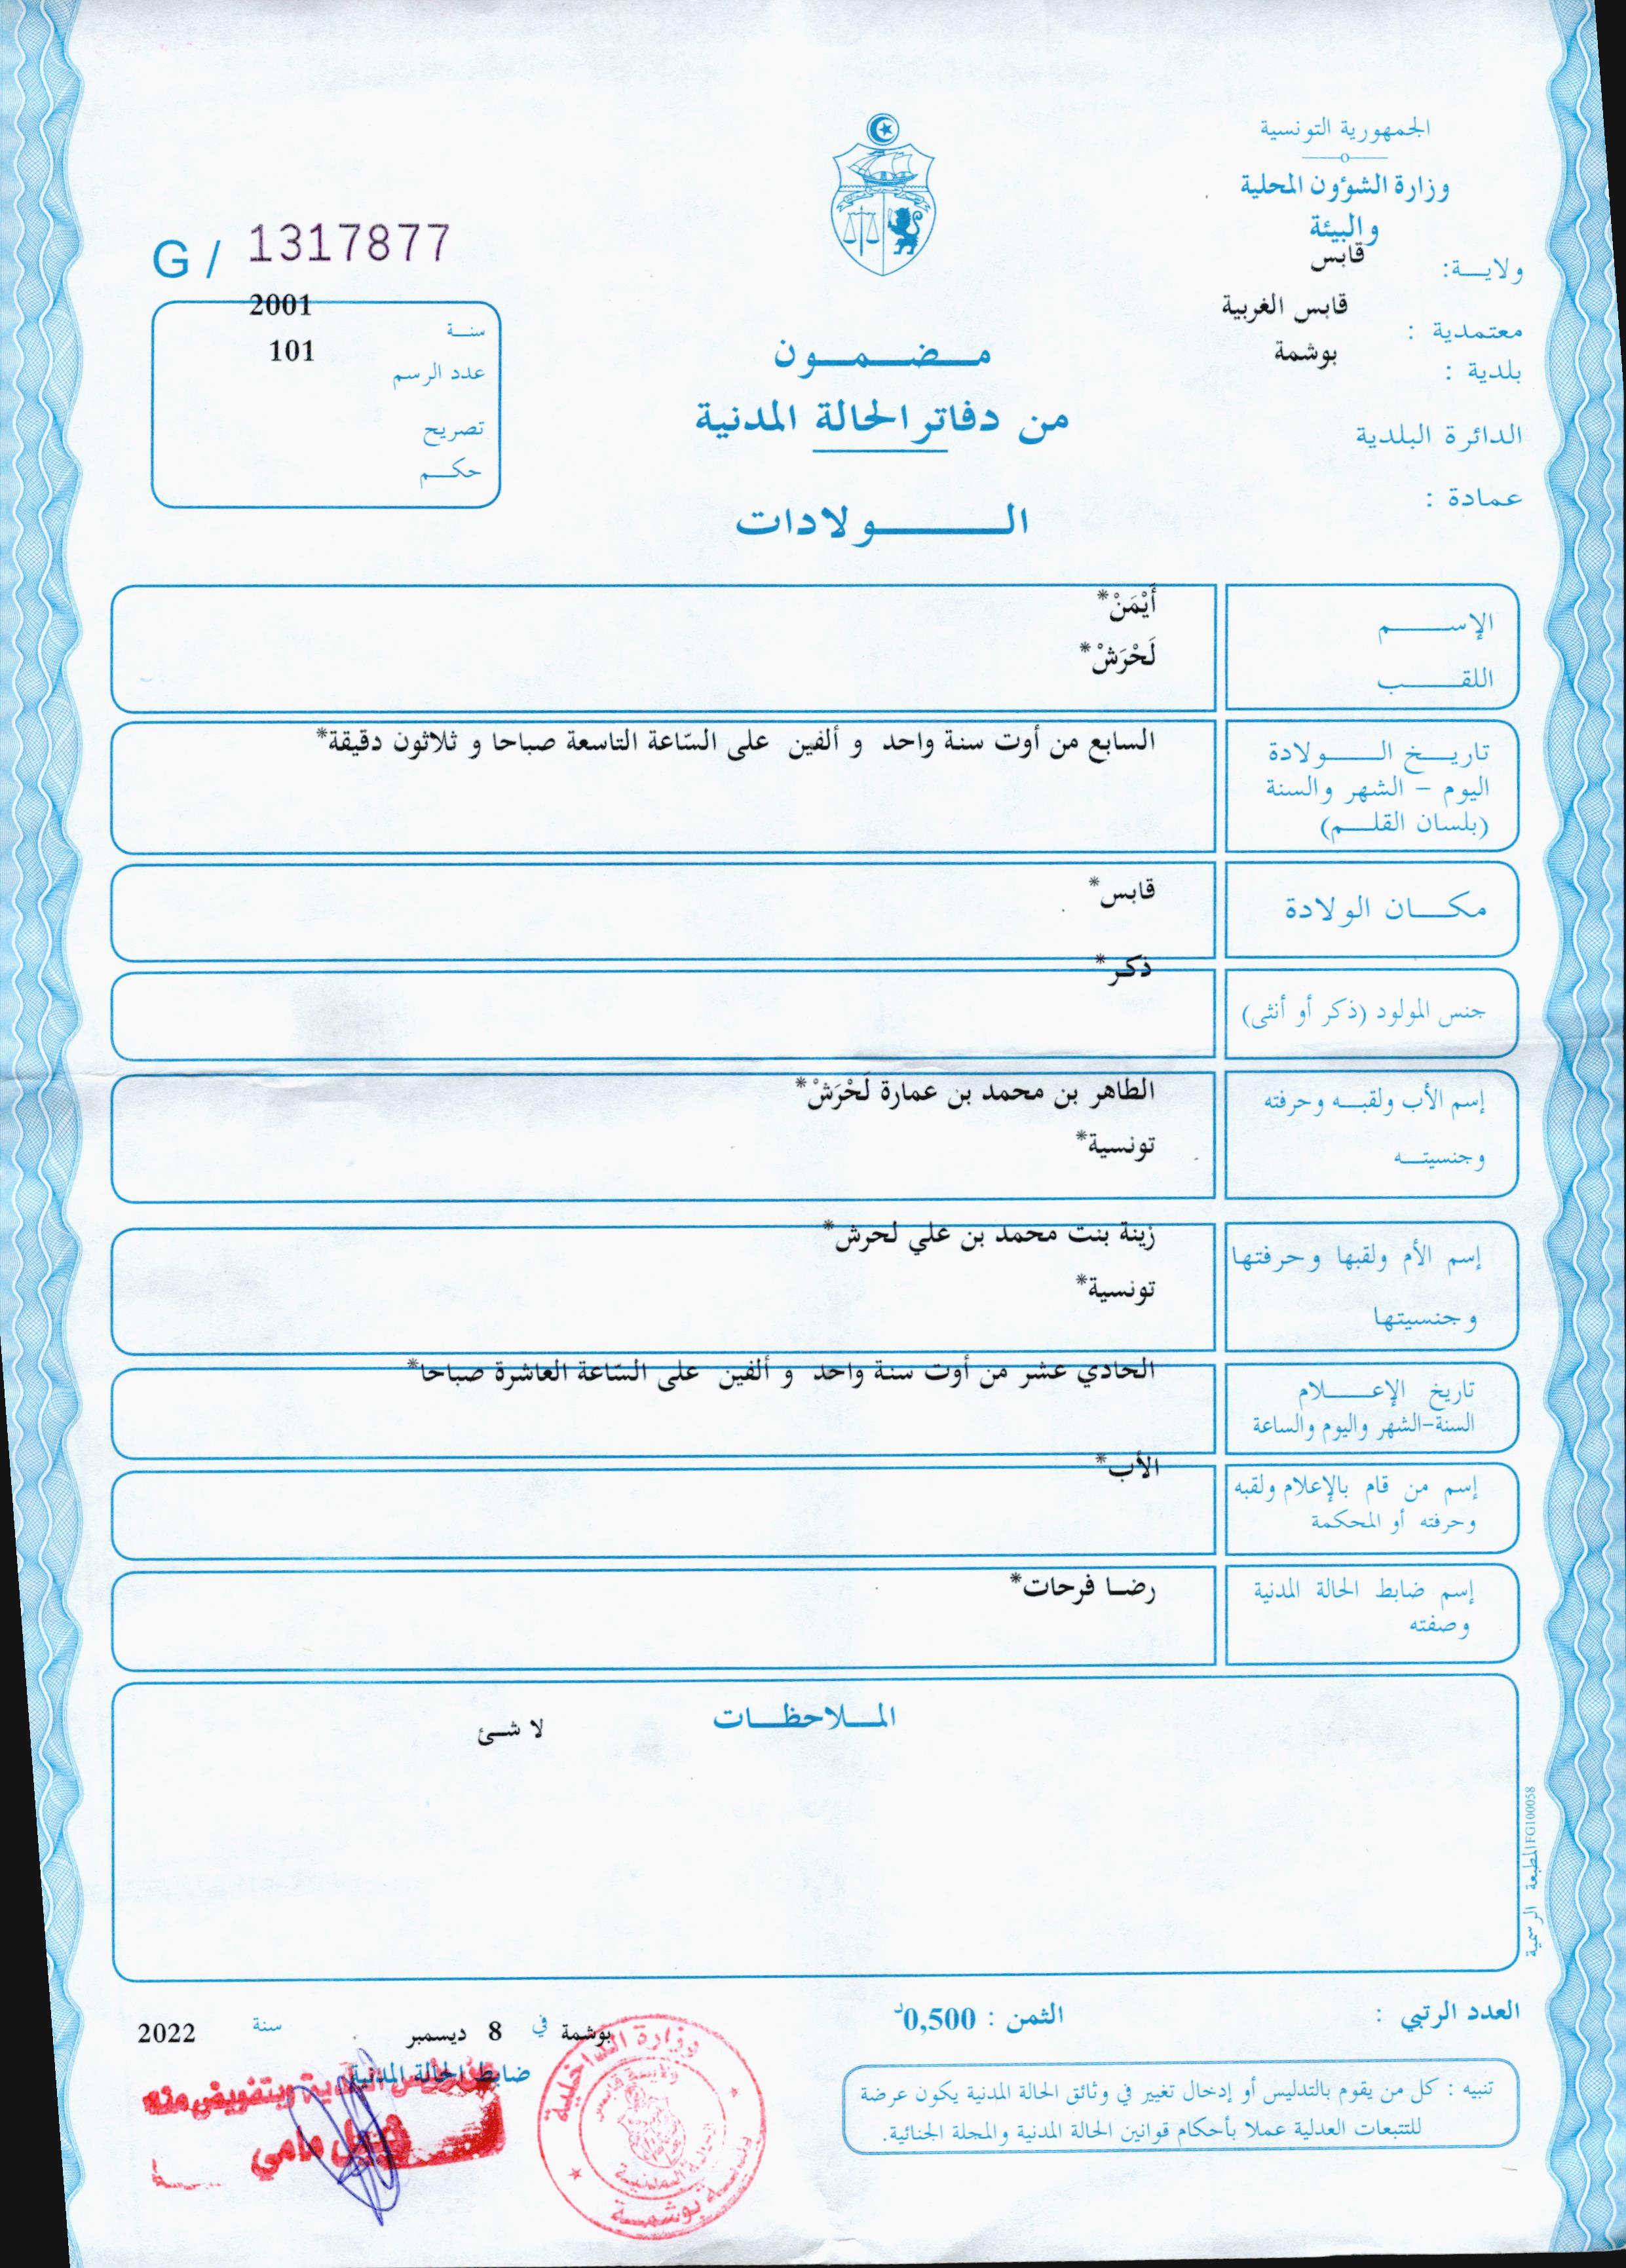 الجمهورية التونسية
وزارة الشؤون المحلية
والبيئة
ولايـــة: قابس
معتمدية : قابس الغربية
بلدية : بوشمة
الدائرة البلدية
عمادة :
G / 1317877
سنــة 2001
عدد الرسم 101
تصريح
حكــم
مــضــمــون
من دفاتر الحالة المدنية
الــــولادات
الإســــم أَيْمَنْ*
اللقــــب لَحْرَشْ*
تاريــخ الــــولادة
اليوم – الشهر والسنة
(بلسان القلــم)
السابع من أوت سنة واحد و ألفين على السّاعة التاسعة صباحا و ثلاثون دقيقة*
مكــان الولادة قابس*
جنس المولود (ذكر أو أنثى) ذكر*
إسم الأب ولقبــه وحرفته الطاهر بن محمد بن عمارة لَحْرَشْ*
وجنسيتــه تونسية*
إسم الأم ولقبها وحرفتها زينة بنت محمد بن علي لحرش*
وجنسيتها تونسية*
تاريخ الإعــــلام
السنة-الشهر واليوم والساعة
الحادي عشر من أوت سنة واحد و ألفين على السّاعة العاشرة صباحا*
إسم من قام بالإعلام ولقبه
وحرفته أو المحكمة
الأب*
إسم ضابط الحالة المدنية
وصفته
رضـا فرحات*
المــلاحظــات
لا شــئ
المطبعة الرسمية FG100058
العدد الرتبي :
الثمن : 0,500د
بوشمة في 8 ديسمبر سنة 2022
ضابط الحالة المدنية
رئيس البلدية وبتفويض منه
مامي
وزارة الداخلية
ولاية قابس
الحالة المدنية
بلدية بوشمة
تنبيه : كل من يقوم بالتدليس أو إدخال تغيير في وثائق الحالة المدنية يكون عرضة
للتتبعات العدلية عملا بأحكام قوانين الحالة المدنية والمجلة الجنائية.